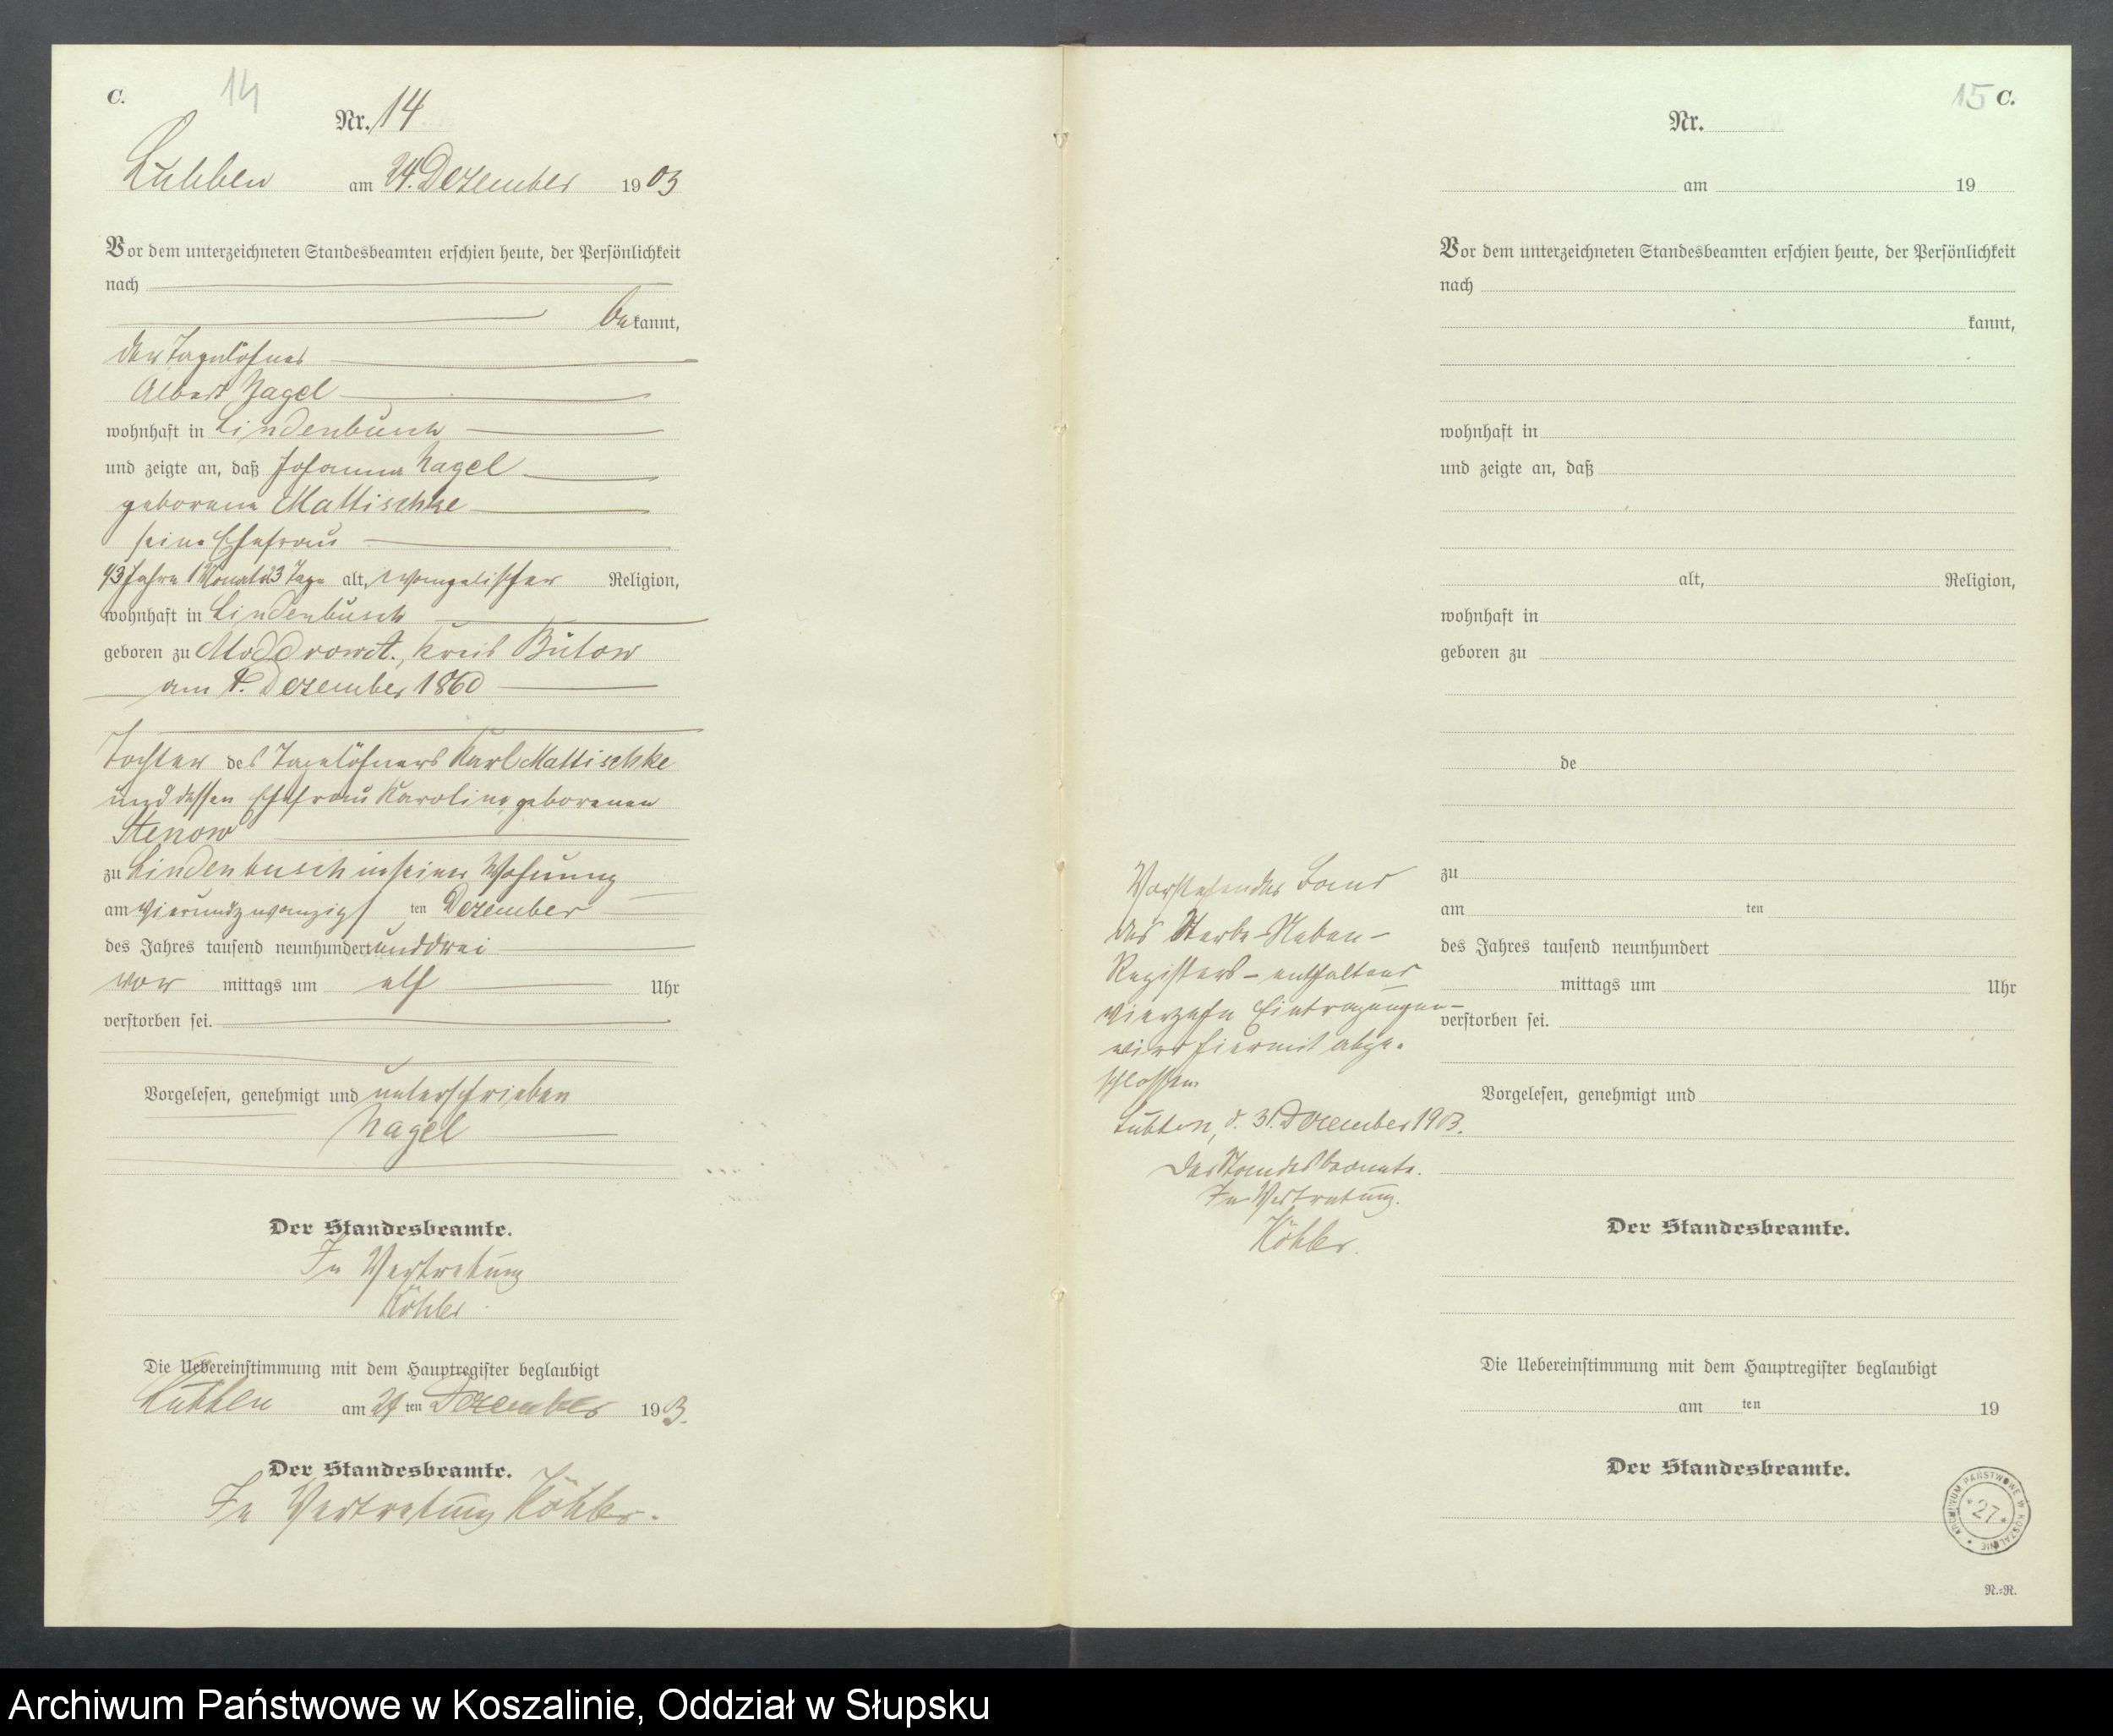 C.
14
Nr. 14
Lubben am 24. Dezember 1903
Vor dem unterzeichneten Standesbeamten erschien heute, der Persönlichkeit
nach
bekannt,
der Tagelöhner
Albert Nagel
wohnhaft in Lindenbusch
und zeigte an, daß Johanna Nagel
geborene Mattischke
seine Ehefrau
43 Jahre 1 Monat 3 Tage alt, evangelischer Religion,
wohnhaft in Lindenbusch
geboren zu Moddrow, Kreis Bütow
am 4. Dezember 1860
Tochter des Tagelöhners Karl Mattischke
und dessen Ehefrau Karoline geborenen
Stenow
zu Lindenbusch in seiner Wohnung
am vierundzwanzigsten Dezember
des Jahres tausend neunhundert und drei
vor mittags um elf Uhr
verstorben sei.
Vorgelesen, genehmigt und unterschrieben
Nagel
Der Standesbeamte.
In Vertretung
Köhler
Die Uebereinstimmung mit dem Hauptregister beglaubigt
Lubben am 24 ten Dezember 1903.
Der Standesbeamte.
In Vertretung Köhler.
15 C.
Nr.
am 19
Vor dem unterzeichneten Standesbeamten erschien heute, der Persönlichkeit
nach
kannt,
wohnhaft in
und zeigte an, daß
alt, Religion,
wohnhaft in
geboren zu
de
zu
am ten
des Jahres tausend neunhundert
mittags um Uhr
verstorben sei.
Vorgelesen, genehmigt und
Vorstehender Band
des Sterbe-Neben-
Registers - enthaltend
vierzehn Eintragungen -
wird hiermit abge-
schlossen
Lubben, d. 31. Dezember 1903.
Der Standesbeamte.
In Vertretung.
Köhler.
Der Standesbeamte.
Die Uebereinstimmung mit dem Hauptregister beglaubigt
am ten 19
Der Standesbeamte.
ARCHIWUM PAŃSTWOWE W KOSZALINIE
*27*
N.=R.
Archiwum Państwowe w Koszalinie, Oddział w Słupsku